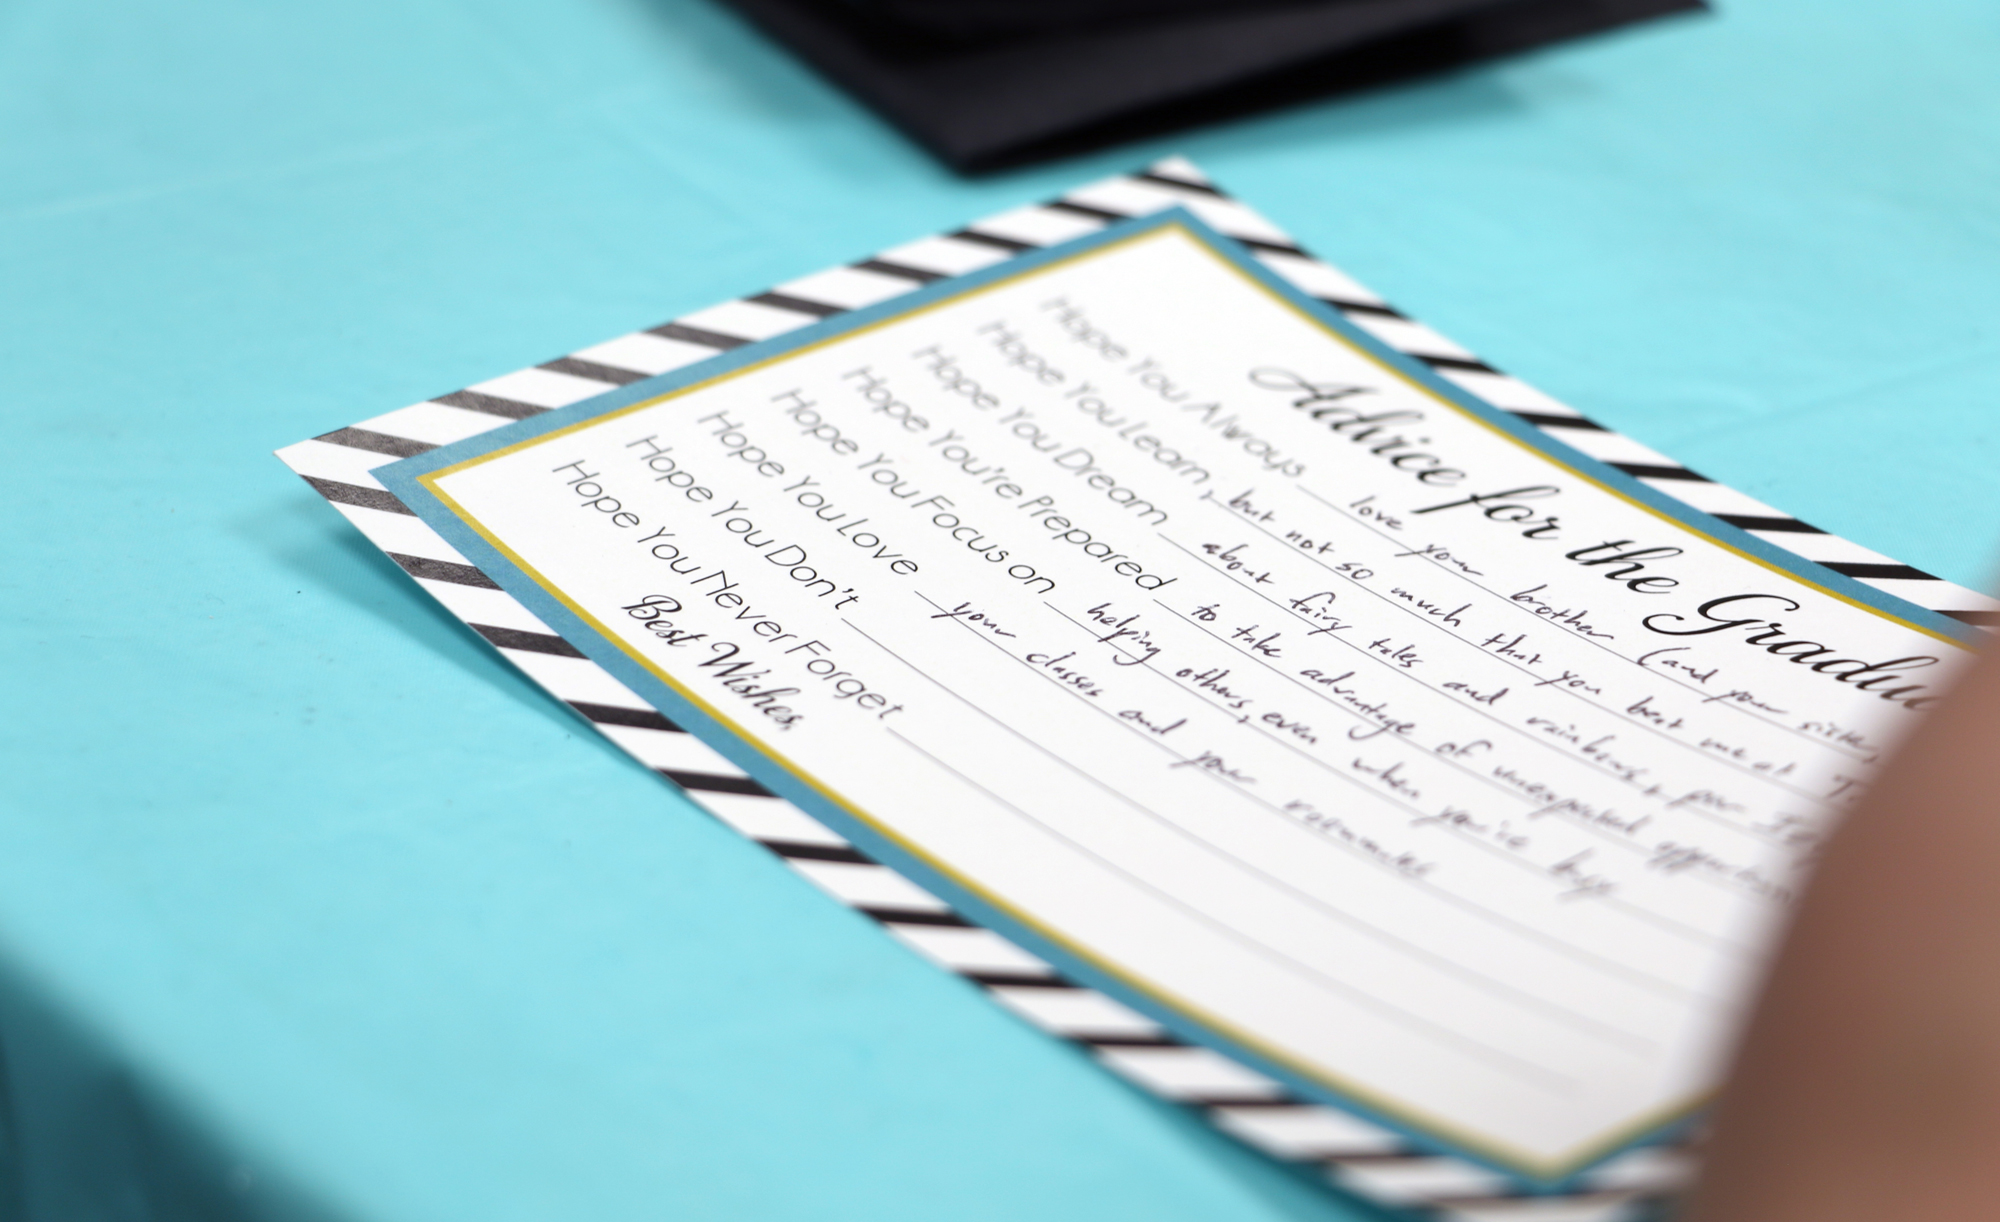 Advice for the
Hope You Always love your brother (and your sister,
Hope You Learn, but not so much that you beat me at
Hope You Dream about fairy tales and rainbows, for
Hope You're Prepared to take advantage of unexpected
Hope You Focus on helping others, even when you're busy
Hope You Love your classes and your roommates
Hope You Don't
Hope You Never Forget
Best Wishes,